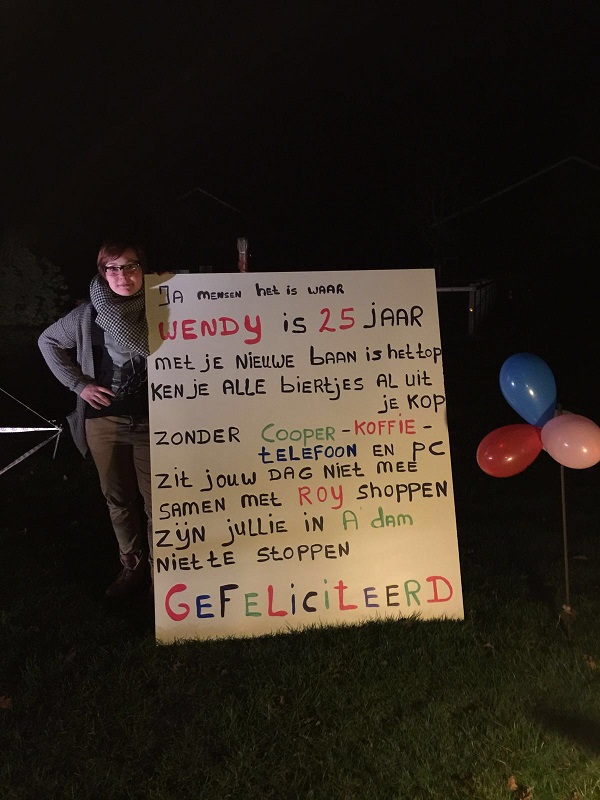 JA MENSEN het is WAAR
WENDY is 25 JAAR
met je NIEUWE baan is het top
KEN je ALLE biertjes AL uit
je KOP
ZONDER COOPER - KOFFIE -
tELEFOON EN PC
zit jouw DAG NIET MEE
SAMEN met ROY shoppen
ZIJN jullie in A'dam
NIET te stoppen
GEFELiCitEERD